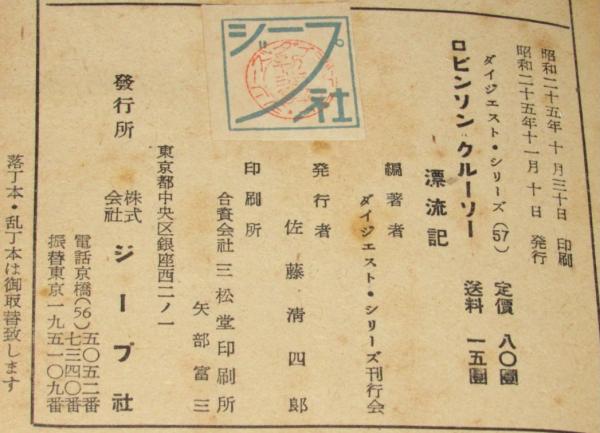 昭和二十五年十月三十日 印刷
昭和二十五年十一月十日 発行
ダイジェスト・シリーズ(57)
ロビンソンクルーソー
漂流記
定價 八〇圓
送料 一五圓
編著者
ダイジェスト・シリーズ刊行会
発行者
佐藤清四郎
印刷所
合資会社三松堂印刷所
矢部富三
ジープ社
東京都中央区銀座西二ノ一
發行所
株式会社 ジープ社
電話京橋(56)五〇五二番
七三四〇番
振替東京一九五一〇九番
落丁本・乱丁本は御取替致します